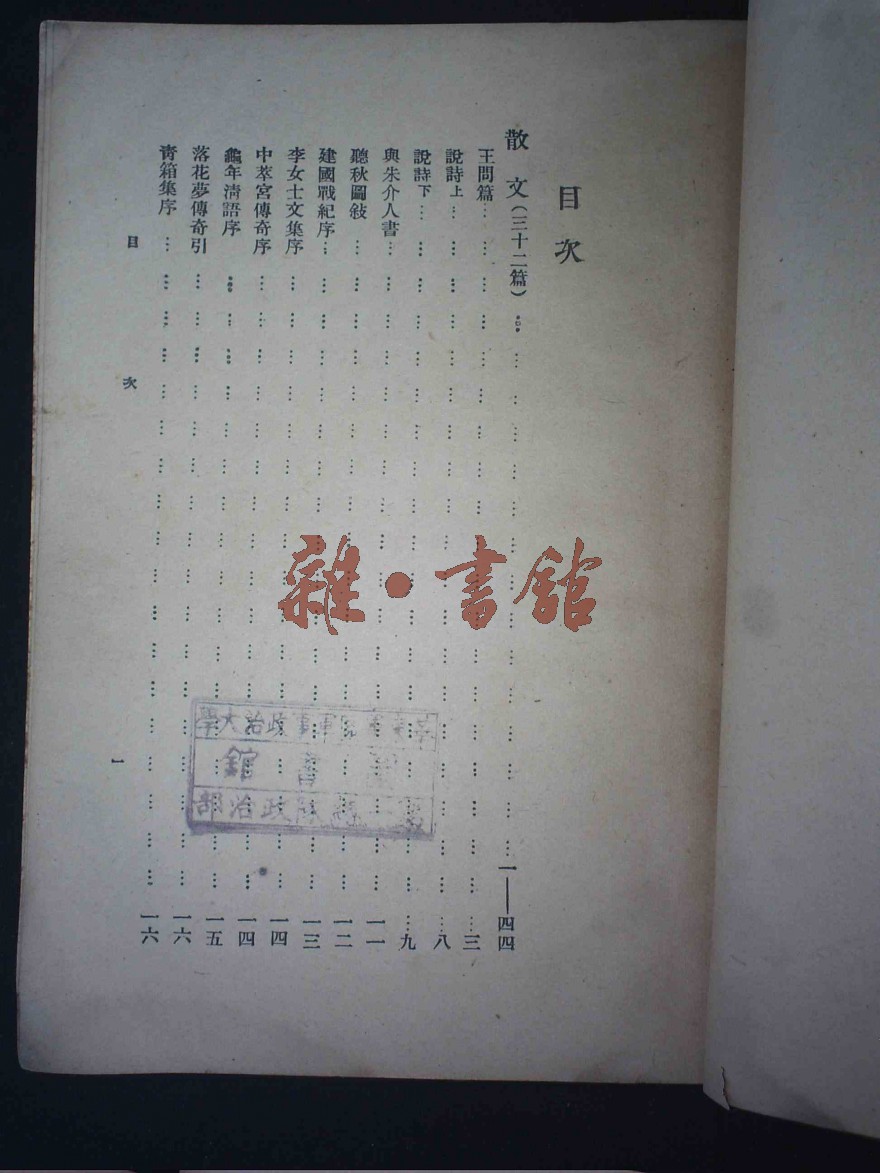 目次
散文(三十二篇)……一——四四
王問篇……三
說詩上……八
說詩下……九
與朱介人書……一一
聽秋圖敍……一二
建國戰紀序……一三
李女士文集序……一四
中萃宮傳奇序……一四
龜年清語序……一五
落花夢傳奇引……一六
青箱集序……一六
目次
一
雜·書館
軍事政治大學
書館
總隊政治部